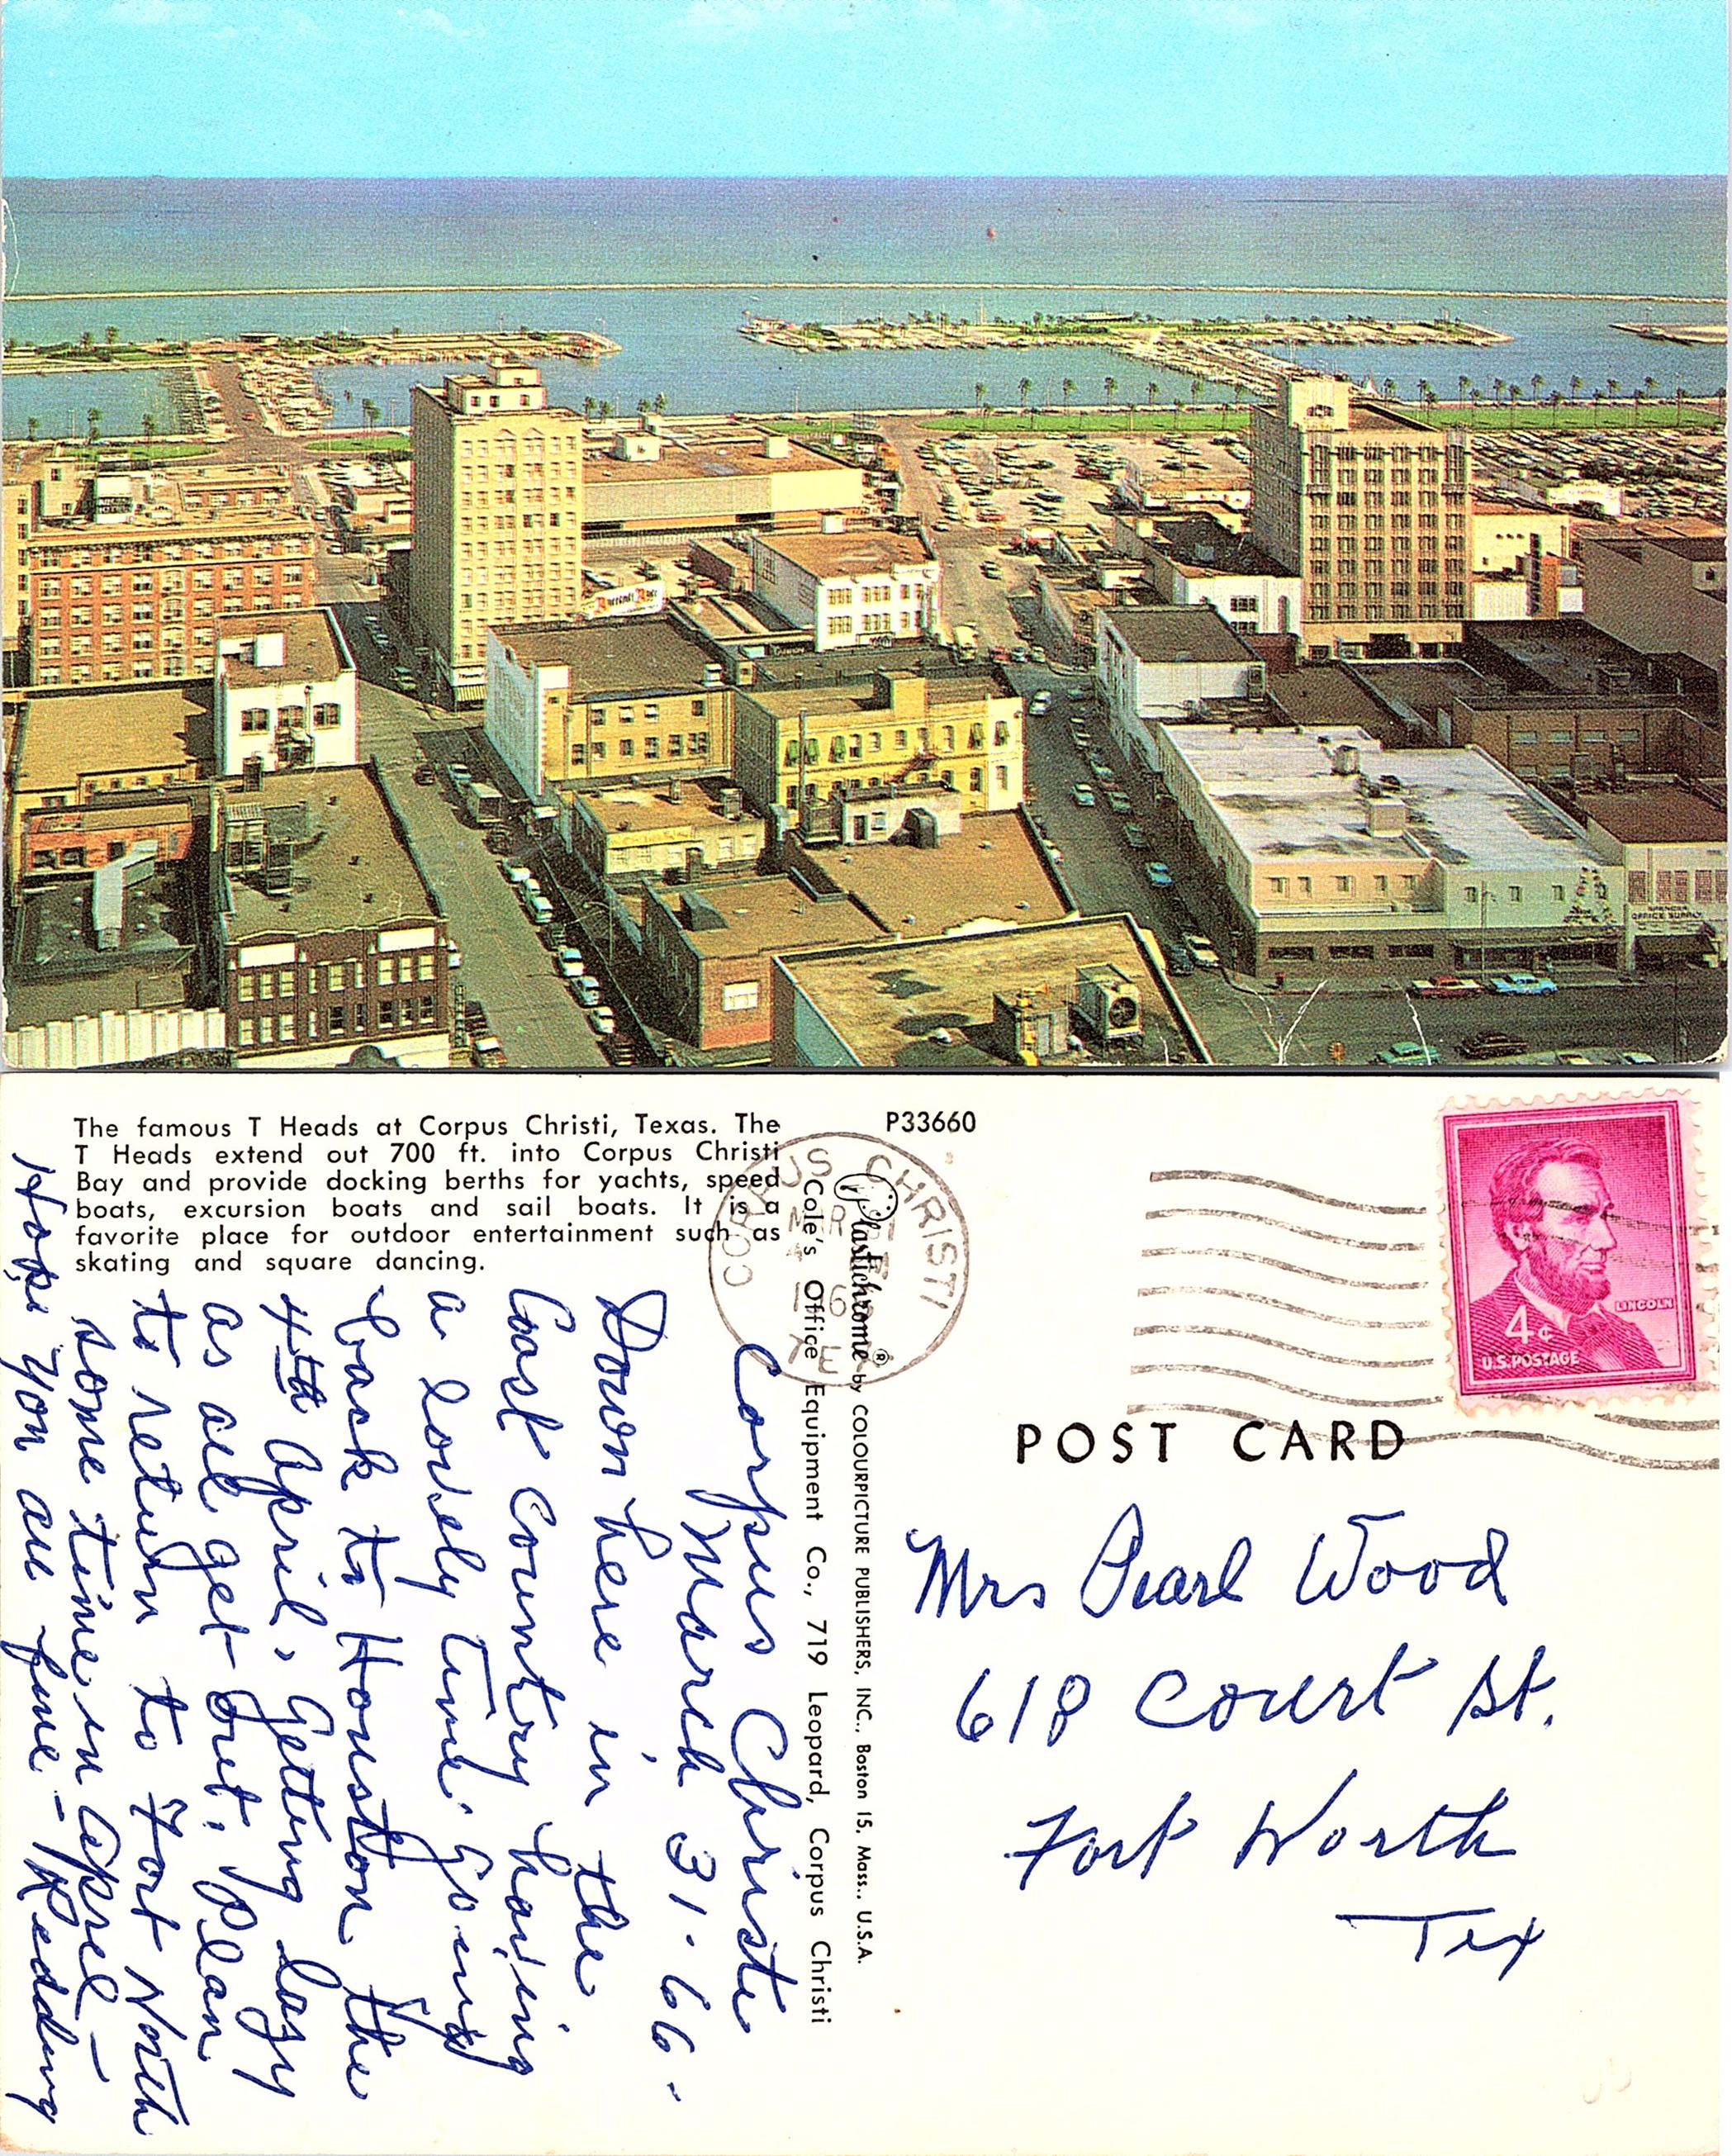 OFFICE SUPPLY
The famous T Heads at Corpus Christi, Texas. The
T Heads extend out 700 ft. into Corpus Christi
Bay and provide docking berths for yachts, speed
boats, excursion boats and sail boats. It is a
favorite place for outdoor entertainment such as
skating and square dancing.
P33660
CORPUS CHRISTI
LINCOLN
4¢
U.S. POSTAGE
POST CARD
Plastichrome ® by COLOURPICTURE PUBLISHERS, INC., Boston 15, Mass., U.S.A.
Cole's Office Equipment Co., 719 Leopard, Corpus Christi
Corpus Christi
March 31-66-
Down here in the
Coast Country having
a lovely time. Going
back to Houston the
4th April. Getting lazy
as all get-out. Plan
to return to Fort Worth
some time in April -
Hope you all fine - Redding
Mrs Pearl Wood
618 Court St.
Fort Worth
Tex